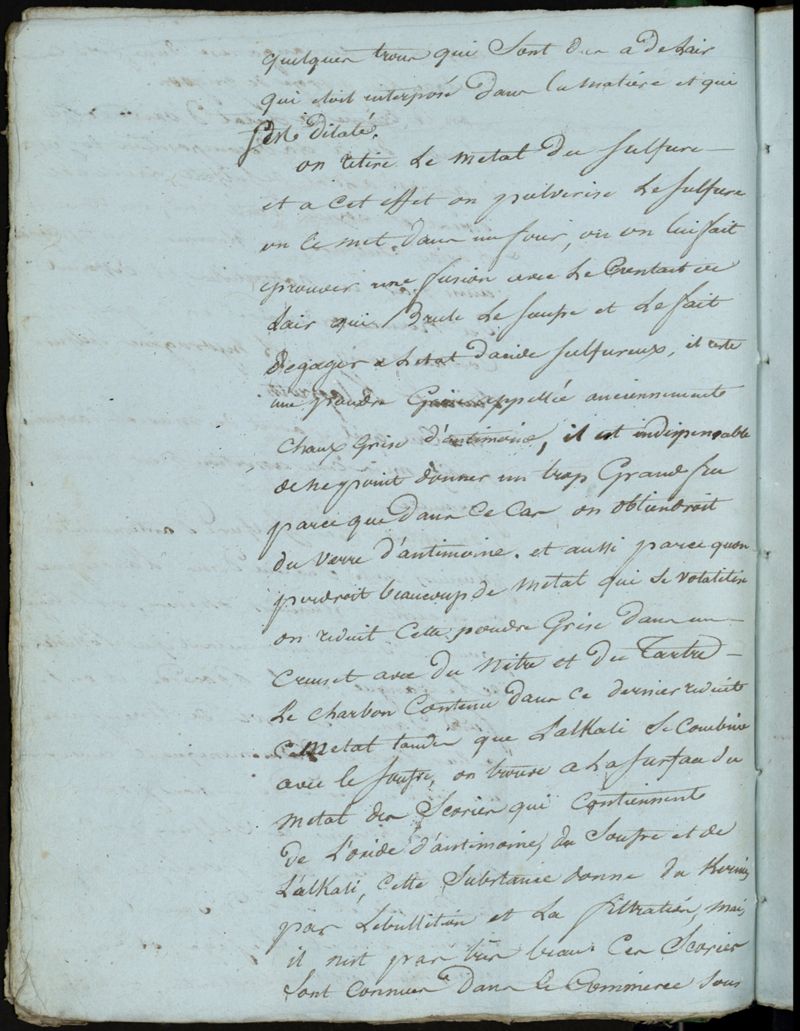 quelques trous qui sont dus a de l'air
qui etoit interposé dans la matière et qui
s'est dilaté.
on retire Le metal du sulfure
et a cet effet on pulverise Le sulfure
on le met dans un four, ou on lui fait
eprouver une fusion avec Le Contact de
L'air qui brule Le soufre et Le fait
degager a L'etat d'acide sulfureux, il reste
une poudre Grise appellée anciennement
Chaux Grise d'antimoine, il est indispensable
de ne point donner un trop Grand feu
parce que dans ce Cas on obtiendroit
du verre d'antimoine. et aussi parce quon
perdroit beaucoup de metal qui se volatilise
on reduit Cette poudre Grise dans un
Creuset avec du Nitre et du Tartre
Le charbon Contenu dans ce dernier reduit
Ce metal tandis que L'alKali se Combine
avec le soufre, on trouve a La surface du
metal des Scories qui Contiennent
de L'oxide d'antimoine, du Soufre et de
L'alKali, Cette Substance donne du Kermes
par L'ebullition et La filtration, mais
il n'est pas très beau Ces Scories
sont connues dans le Commerce sous